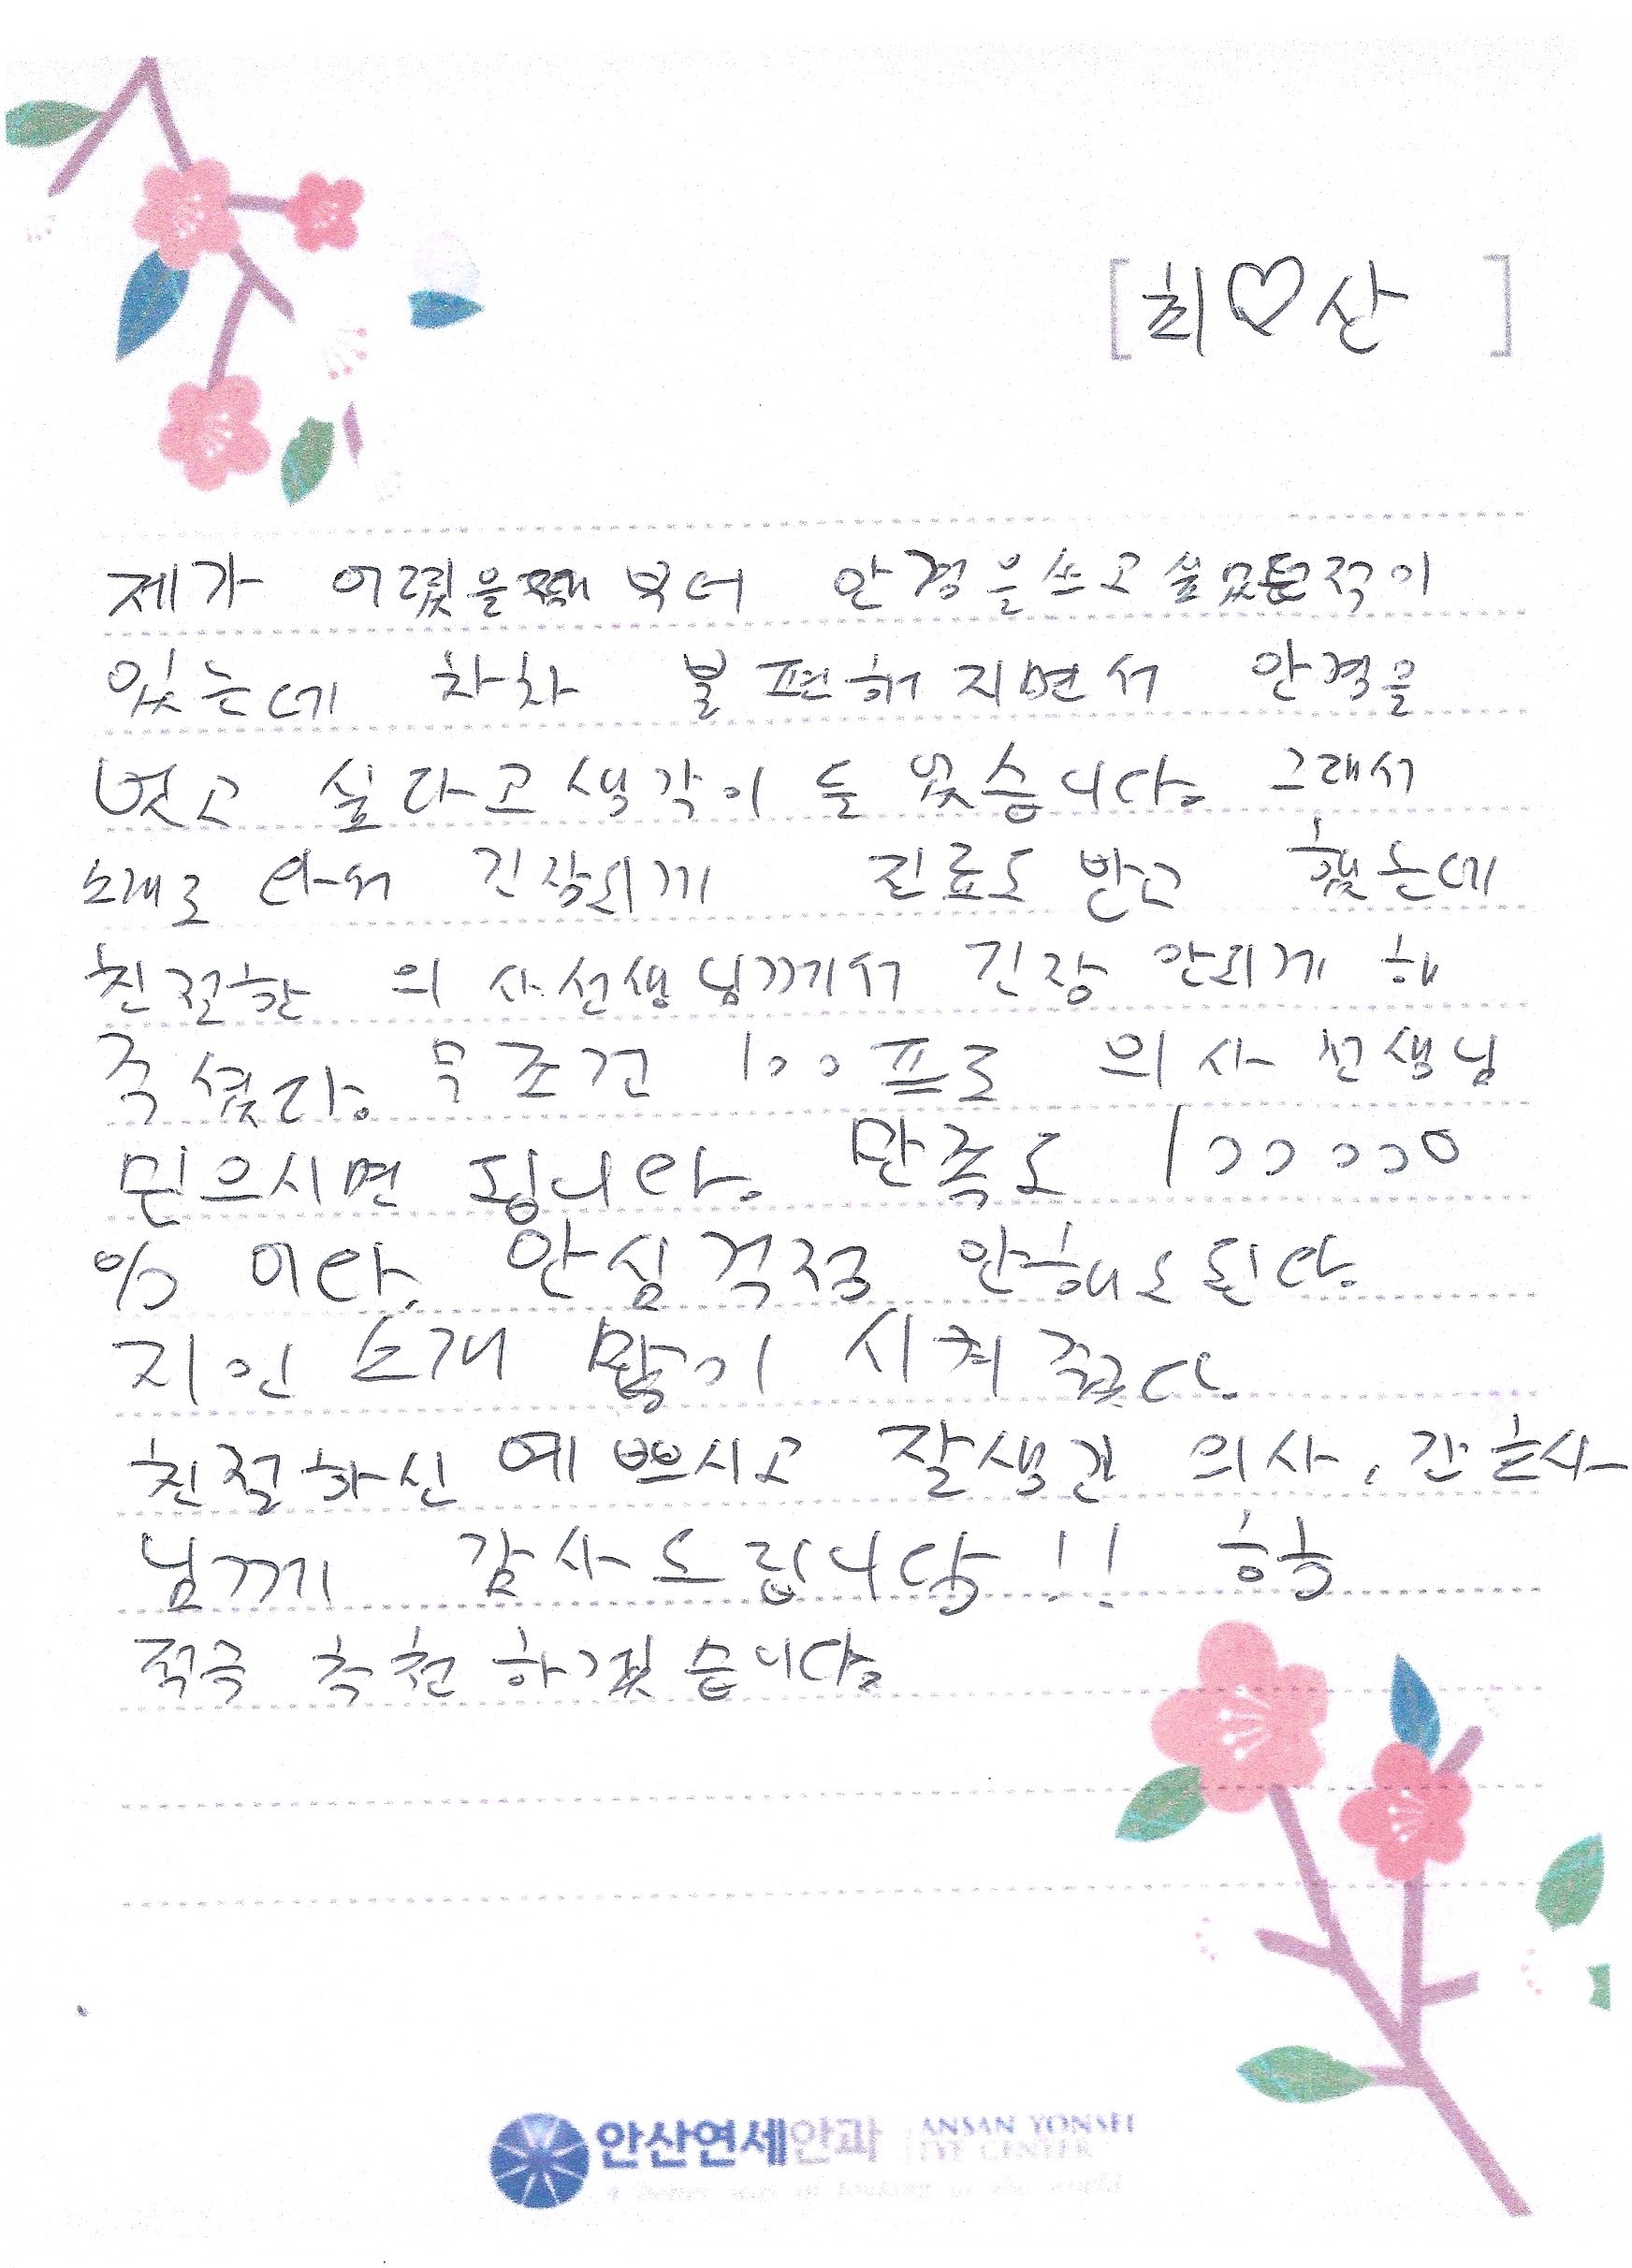 [ 최♡산 ]
제가 어렸을때 부터 안경을쓰고 싶었던적이
있는데 차차 불편해지면서 안경을
벗고 싶다고생각이 든 있습니다. 그래서
소개로 와서 긴장되게 진료도 받고 했는데
친절한 의사선생님께서 긴장 안되게 해
주셨다. 무조건 100프로 의사선생님
믿으시면 됩니다. 만족도 100000
% 이다. 안심 걱정 안해도된다.
지인 소개 많이 시켜 줬다.
친절하신 예쁘시고 잘생긴 의사, 간호사
님께 감사드립니당!! 흥흥
적극 추천하겠습니다.
안산연세안과 ANSAN YONSEI
EYE CENTER